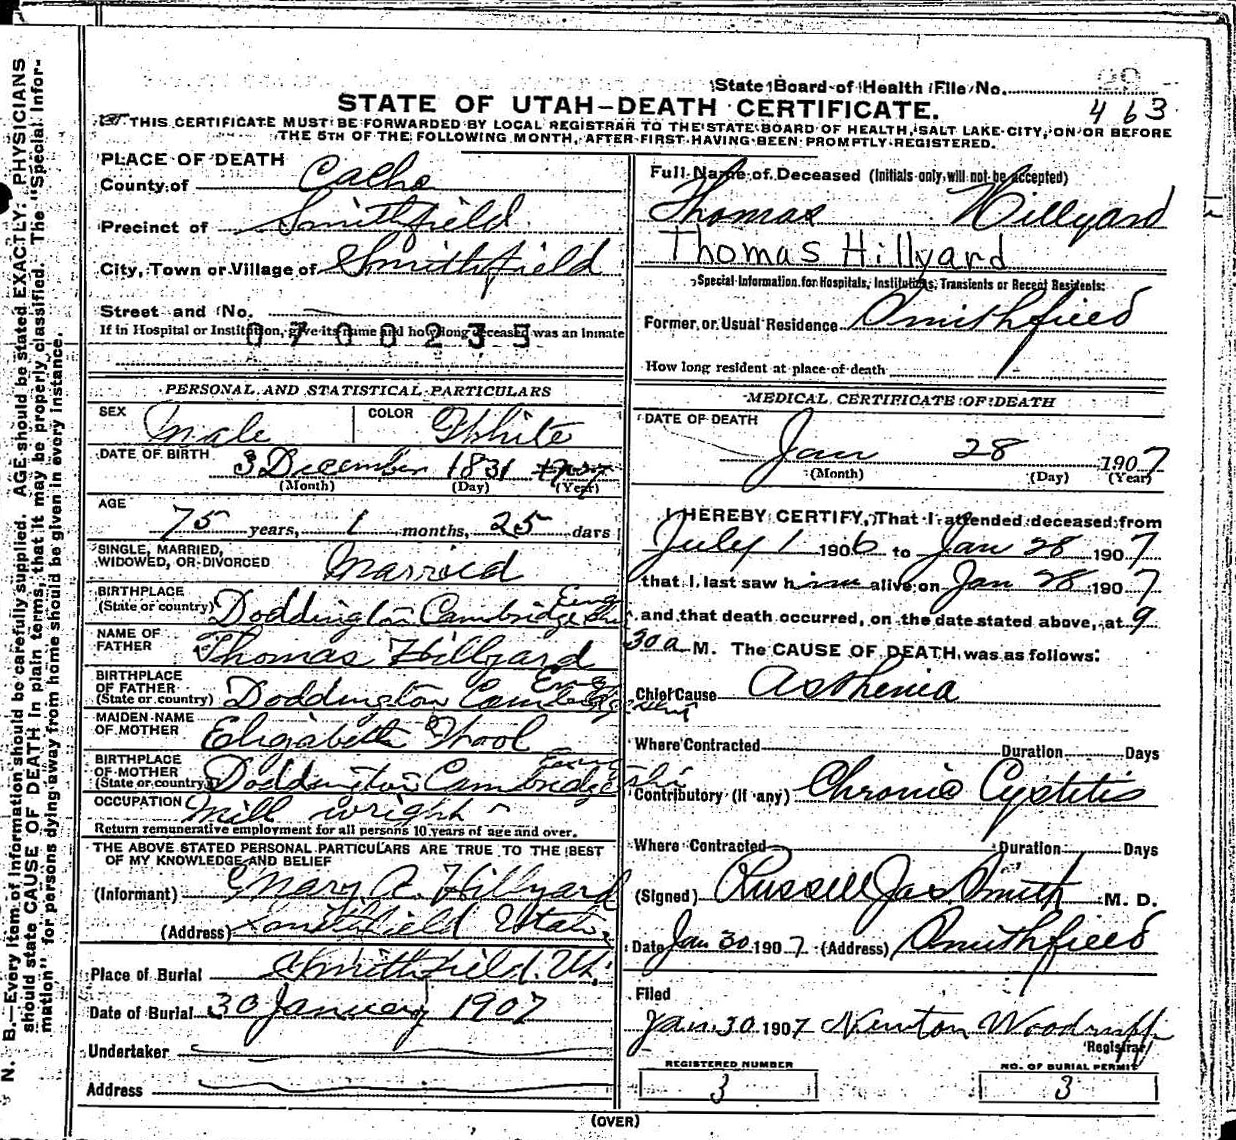 State Board of Health File No.
463
STATE OF UTAH—DEATH CERTIFICATE.
THIS CERTIFICATE MUST BE FORWARDED BY LOCAL REGISTRAR TO THE STATE BOARD OF HEALTH, SALT LAKE CITY, ON OR BEFORE
THE 5TH OF THE FOLLOWING MONTH, AFTER FIRST HAVING BEEN PROMPTLY REGISTERED.
PLACE OF DEATH
County of Cache
Precinct of Smithfield
City, Town or Village of Smithfield
Street and No.
If in Hospital or Institution, give its name and how long deceased was an inmate
0700235
PERSONAL AND STATISTICAL PARTICULARS
SEX Male COLOR White
DATE OF BIRTH 3 December 1831
(Month) (Day) (Year)
AGE 75 years, 1 months, 25 days
SINGLE, MARRIED,
WIDOWED, OR DIVORCED Married
BIRTHPLACE
(State or country) Doddington Cambridgeshire Eng
NAME OF
FATHER Thomas Hillyard
BIRTHPLACE
OF FATHER
(State or country) Doddington Cambridgeshire Eng
MAIDEN NAME
OF MOTHER Elizabeth Wool
BIRTHPLACE
OF MOTHER
(State or country) Doddington Cambridgeshire Eng
OCCUPATION Mill wright
Return remunerative employment for all persons 10 years of age and over.
THE ABOVE STATED PERSONAL PARTICULARS ARE TRUE TO THE BEST
OF MY KNOWLEDGE AND BELIEF
(Informant) Mary A. Hillyard
(Address) Smithfield Utah
Place of Burial Smithfield. Ut.
Date of Burial 30 January 1907
Undertaker
Address
Full Name of Deceased (Initials only will not be accepted)
Thomas Hillyard
Thomas Hillyard
Special Information for Hospitals, Institutions, Transients or Recent Residents:
Former or Usual Residence Smithfield
How long resident at place of death
MEDICAL CERTIFICATE OF DEATH
DATE OF DEATH
Jan 28 1907
(Month) (Day) (Year)
I HEREBY CERTIFY, That I attended deceased from
July 1 1906 to Jan 28 1907
that I last saw him alive on Jan 28 1907
and that death occurred, on the date stated above, at 9
30 a M. The CAUSE OF DEATH was as follows:
Chief Cause Asthenia
Where Contracted Duration Days
Contributory (if any) Chronic Cystitis
Where Contracted Duration Days
(Signed) Russell Jas. Smith M. D.
Date Jan 30 1907 (Address) Smithfield
Filed
Jan. 30 1907 Newton Woodruff
Registrar
REGISTERED NUMBER
3
NO. OF BURIAL PERMIT
3
(OVER)
N. B.—Every item of information should be carefully supplied. AGE should be stated EXACTLY. PHYSICIANS
should state CAUSE OF DEATH in plain terms, that it may be properly classified. The "Special Infor-
mation" for persons dying away from home should be given in every instance.